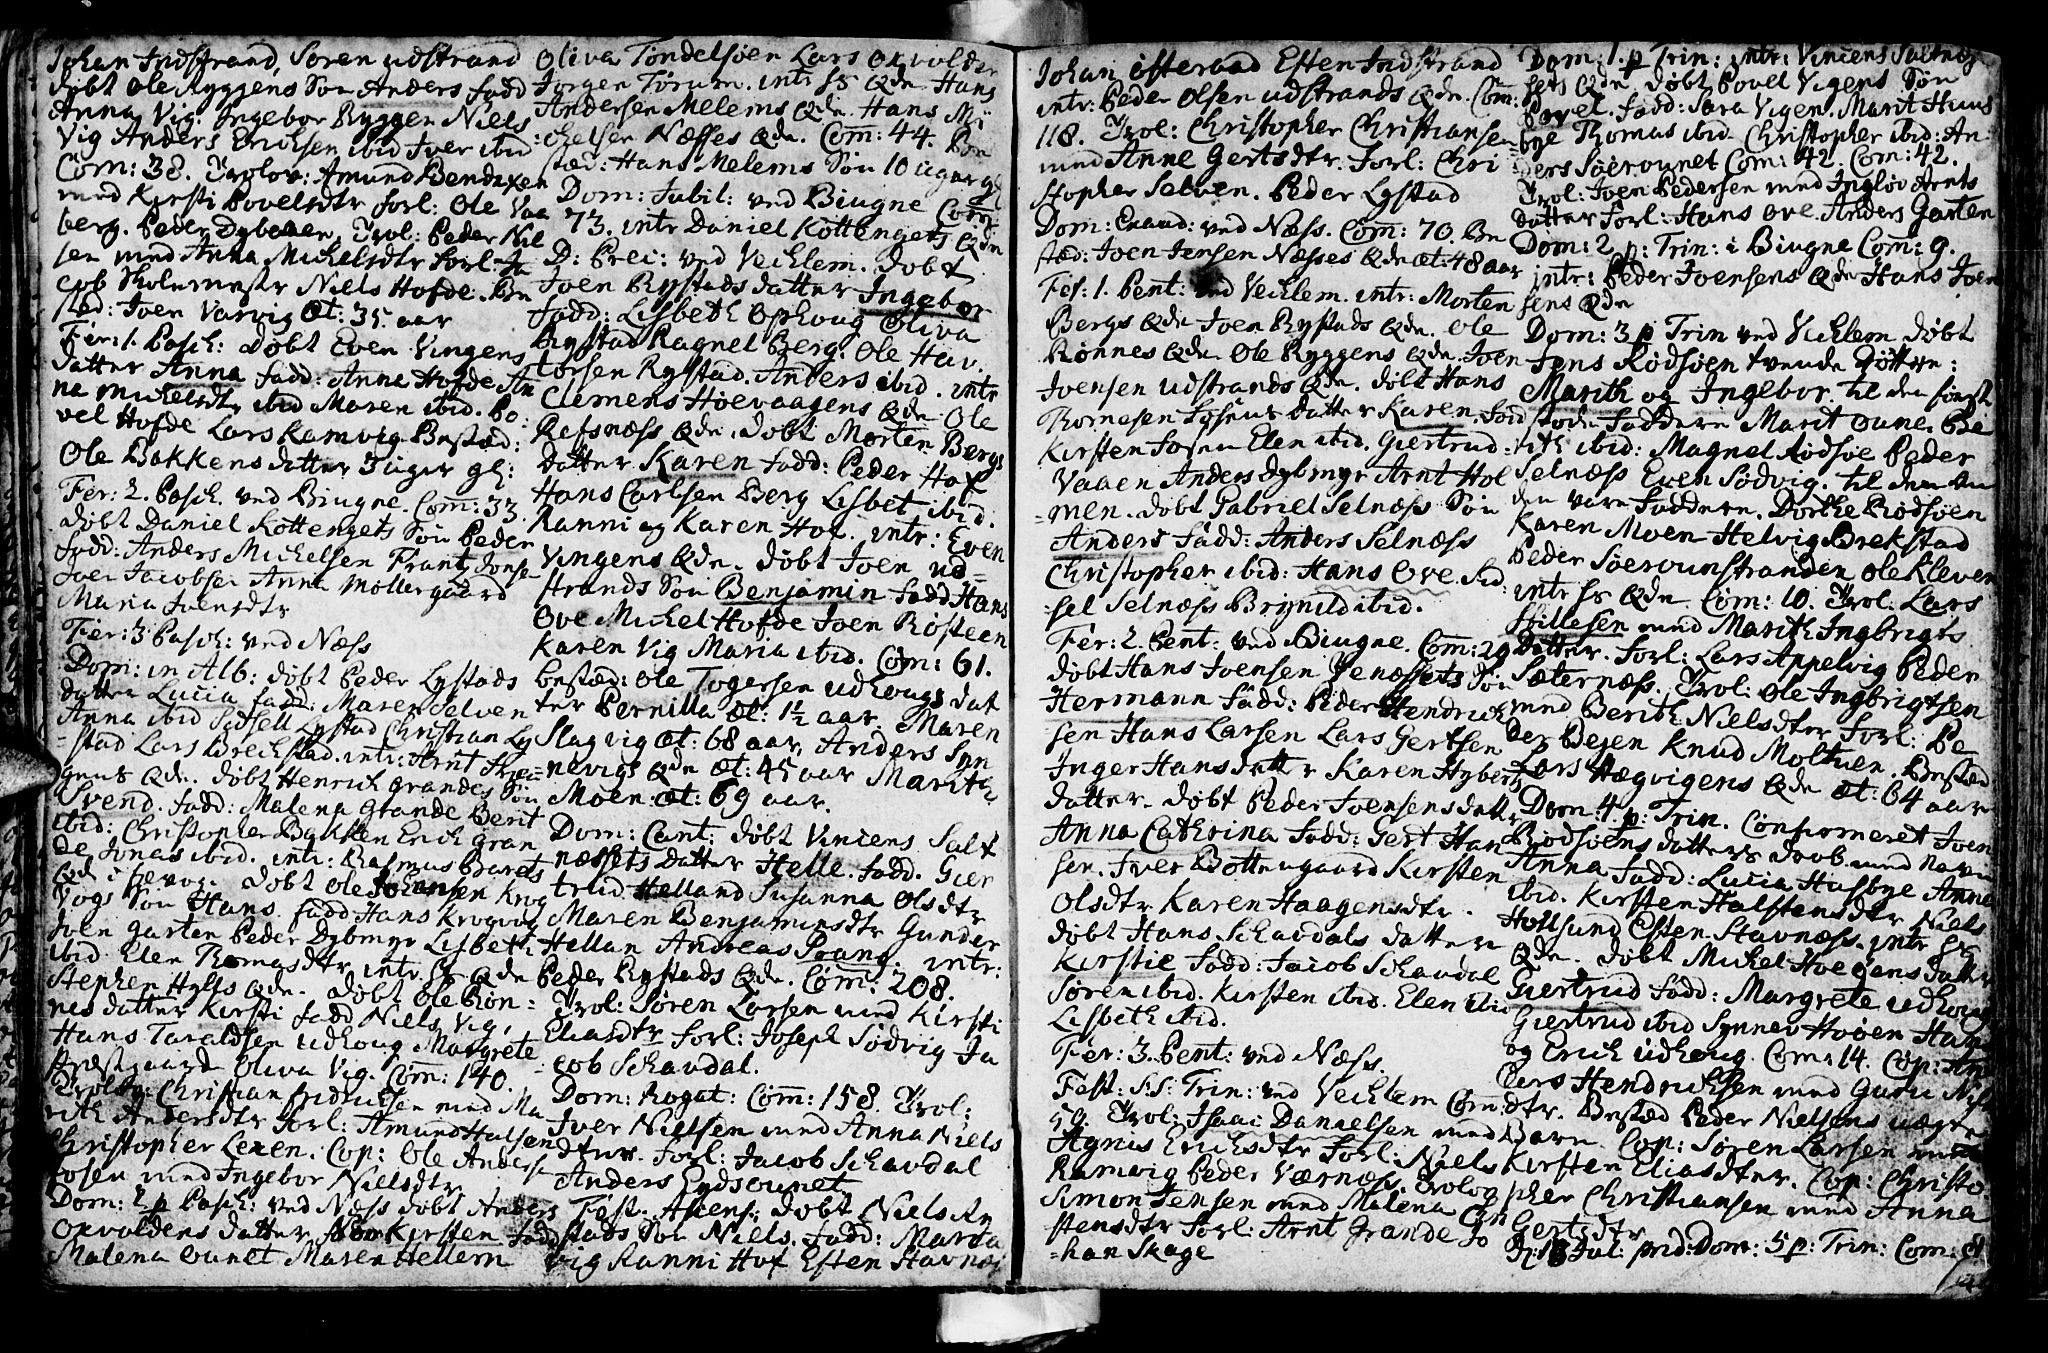 Johan Indstrand, Søren udstrand
døbt Ole Ryggens Søn Anders fadd
Anna Vig. Ingebor Ryggen Niels
Vig Anders Erichsen ibid Iver ibid
Com: 38. Trolov: Amund Bendixen
med Kirsti Povelsdtr forl: Ole Vaa
berg. Peder Dybaaen, Trol: Peder Niel
sen med Anna Michelsdtr forl: Ja
cob Skolemestr Niels Hofde. Be
stæd: Joen Varvig Æt: 35 aar
Fer: 1. Pasch: døbt Even Vingens
datter Anna fadd: Anna Hofde An
na Michelsdtr ibid Maren ibid. Po:
vel Hofde Lars Ramvig. Bestæd:
Ole Bakkens datter 3 uger gl:
Fer: 2. Pasch. ved Biugne. Com: 33.
døbt Daniel Kottengets Søn Peder
fadd: Anders Michelsen Frantz Jonse
Iver Jacobsen Anna Møllergaard
Maria Iversdtr
Fer: 3 Pasch: ved Næss
Dom: in Alb: døbt Peder Lystads
datter Lucia fadd: Maren Selven
Anna ibid Sidsell Lystad Christian Ly
=stad Lars Brechstad. intr: Arnt
gens Qde. døbt Henrich Grandes Søn
Svend. fadd: Malena Grande Berit
ibid: Christopher Bakken Erich Gran
de Jonas ibid. intr: Rasmus
Qde i døbt Ole Johansen Krog
vogs Søn Hans. fadd Hans Krogvog
Joen Garten Peder Dybmyr Lisbeth
ibid. Elen Thomasdtr intr: ss Qde
Stephen Hylls Qde. døbt Ole Røn=
nes datter Kirsti fadd Niels Vig,
Hans Taraldsen udhoug Margrete
Præstgaard Oliva Vig. Com: 140.
Trolov: Christian fridrichsen med Ma
rith Andersdtr forl: Amund Halsen
Christopher Lexen. Cop: Ole Anders
fosen med Ingebor Nielsdtr
Dom: 2 p Pasch: ved Næss døbt Anders
Oxvoldens datter Kirsten fadd
Malena ounet Maren Hellem
Oliva Tøndelsøen Lars Oxvolden
Jørgen Tørum. intr ss Qde. Hans
Andersen Melems Qde. Hans Mi
:chelsen Næsses Qde. Com: 44. Be
stæd: Hans Melems Søn 10 uger gl
Dom: Jubil: ved Biugne Com:
73. intr Daniel Kottengets Qde
D: Prec: ved Vecklem. døbt
Joen Rystads datter Ingebor
fadd: Lisbeth Ophoug Oliva
Rystad Ragnel Berg. Ole Hav:
torsen Rystad. Anders ibid. intr
Clemens Høevaagens Qde. Ole
Refsnæss Qde. døbt Morten Bergs
datter Karen fadd: Peder Hox
Hans Carlsen Berg Lisbet ibid.
Ranni og Karen Hox. intr: Even
Vingens Qde. døbt Joen ud=
strands Søn Benjamin fadd Hans
Ove Michel Hofde Joen Rosteen
Karen Vig Maria ibid. Com: 61.
bestæd: Ole Togersen udhougs dat
ter Pernilla æt: 1½ aar. Maren
Slagvig æt: 68 aar, Anders Syn
nevigs Qde æt: 45 aar Marith
Moen æt: 69 aar.
Dom: Cant: døbt Vincens Salt
næssets datter Helle. fadd. Gier
trud Helland Susanna Olsdtr
Maren Benjaminsdtr Gunder
Hellan Andreas Prang. intr:
Peder Rystads Qde. Com: 208.
Trol: Søren Larsen med Kirsti
Eliasdtr forl: Joseph Sødvig Ja
=cob Schavdal.
Dom: Rogat: Com: 158. Trol:
Iver Nielsen med Anna Niels
dttr. forl: Jacob Schavdal
Anders Eydsounet
Fest. Ascens: døbt Niels
stads Søn Niels. fadd: Marta
Vig Ranni Hox Esten Stavnæs
Johan østeraad Esten Indstrand
intr: Peder Olsen udstrands Qde. Com:
118. Trol: Christopher Christiansen
med Anne Gertsdtr. forl: Chri
stopher Selven. Peder Lystad
Dom: Exaud: ved Næss. Com: 70. Be
stæd: Joen Jensen Næsses Qde æt: 48 aar
Fer: 1. Pent: ved Vecklem. intr: Morten
Bergs Qde Joen Rystads Qde. Ole
Rønnes Qde Ole Ryggens Qde. Joen
Joensen udstrands Qde. døbt Hans
Thomesen datter Karen. fadd
Kirsten Elen ibid. Giertrud
Vaaen Anders Dybmyr Arnt Hol
=men. døbt Gabriel Selnæss Søn
Anders fadd: Anders Selnæss
Christopher ibid: Hans Ove. Sid
=sel Selnæss Brynild ibid.
Fer: 2. Pent: ved Biugne. Com: 29
døbt Hans Joensen Søn
Hermann fadd: Peder Hendrich
sen Hans Larsen Lars Gertsen
Inger Hansdatter Karen Hyberts
datter. døbt Peder Joensens datter
Anna Cathrina fadd: Gert Han
sen. Iver Bottengaard Kirsten
Olsdtr Karen Haagensdtr.
døbt Hans Schavdals datter
Kirstie fadd: Jacob Schavdal
Søren ibid. Kirsten ibid. Elen ibid
Lisbeth ibid.
Fer: 3. Pent: ved Næss.
Fest: S.S: Trin: ved Vecklem Com:
59. Trol: Isaac Danielsen med
Agnis Erichsdtr forl: Niels
Ramvig Peder Værnæss. Trolog
Simon Jensen med Malena
stensdtr forl: Arnt Grande Jo
=han Skage
Dom: 1. p Trin: intr: Vincens Saltnæs
sets Qde døbt Povel Vigens Søn
Povel. fadd: Sara Vigen. Marit Huus
bye Thomas ibid. Christopher ibid: An
ders Søerounet Com: 42. Com: 42.
Trol: Joen Pedersen med Ingløv Arnts
datter forl: Hans Ove. Anders Garten
Dom: 2 p: Trin: i Biugne Com: 9.
intr: Peder Joensens Qde Hans Joen
sens Qde
Dom: 3 p Trin ved Vecklem døbt
Jens Rødsøen tvende Døttre:
Marith og Ingebor. til den først
stoede faddere Marit Oune. Be
rith ibid: Magnel Rødsøe Peder
Selnæss Even Sødvig. til den An
den vare faddere. Dorthe Rødsøen
Karen Moen Helvig Brekstad
Peder Søerounstranden Ole Kleven
intr ss Qde. Com: 10. Trol: Lars
Stillesen med Marith Ingbrigts
datter. forl: Lars Appelvig Peder
Sæternæss. Trol: Ole Ingbrigtsen
med Berith Nielsdtr forl: Pe
der Beyen Knud Moltuen. Bestæd
Lars Hægvigens Qde æt: 64 aar
Dom: 4. p: Trin. Confirmeret Joen
Rødsøens datters daab med Navn
Anna fadd: Lucia Husbye Anne
ibid. Kirsten Halstensdtr Niels
Holtsund Esten Stavnæss. intr ss
Qde. døbt Michel Hoegans datter
Giertrud fadd: Margrete udhoug
Giertrud ibid Synnev Hoven Hans
og Erich udhoug. Com: 14. Cop: An
ders Hendrichsen med Guru Niels
dtr. Bestæd Peder Nielsens uægte
Barn. Cop: Søren Larsen med
Kirsten Eliasdtr. Cop: Christo
pher Christiansen med Anna
Gertsdtr
Jul: Dom: 5 p: Trin: Com: